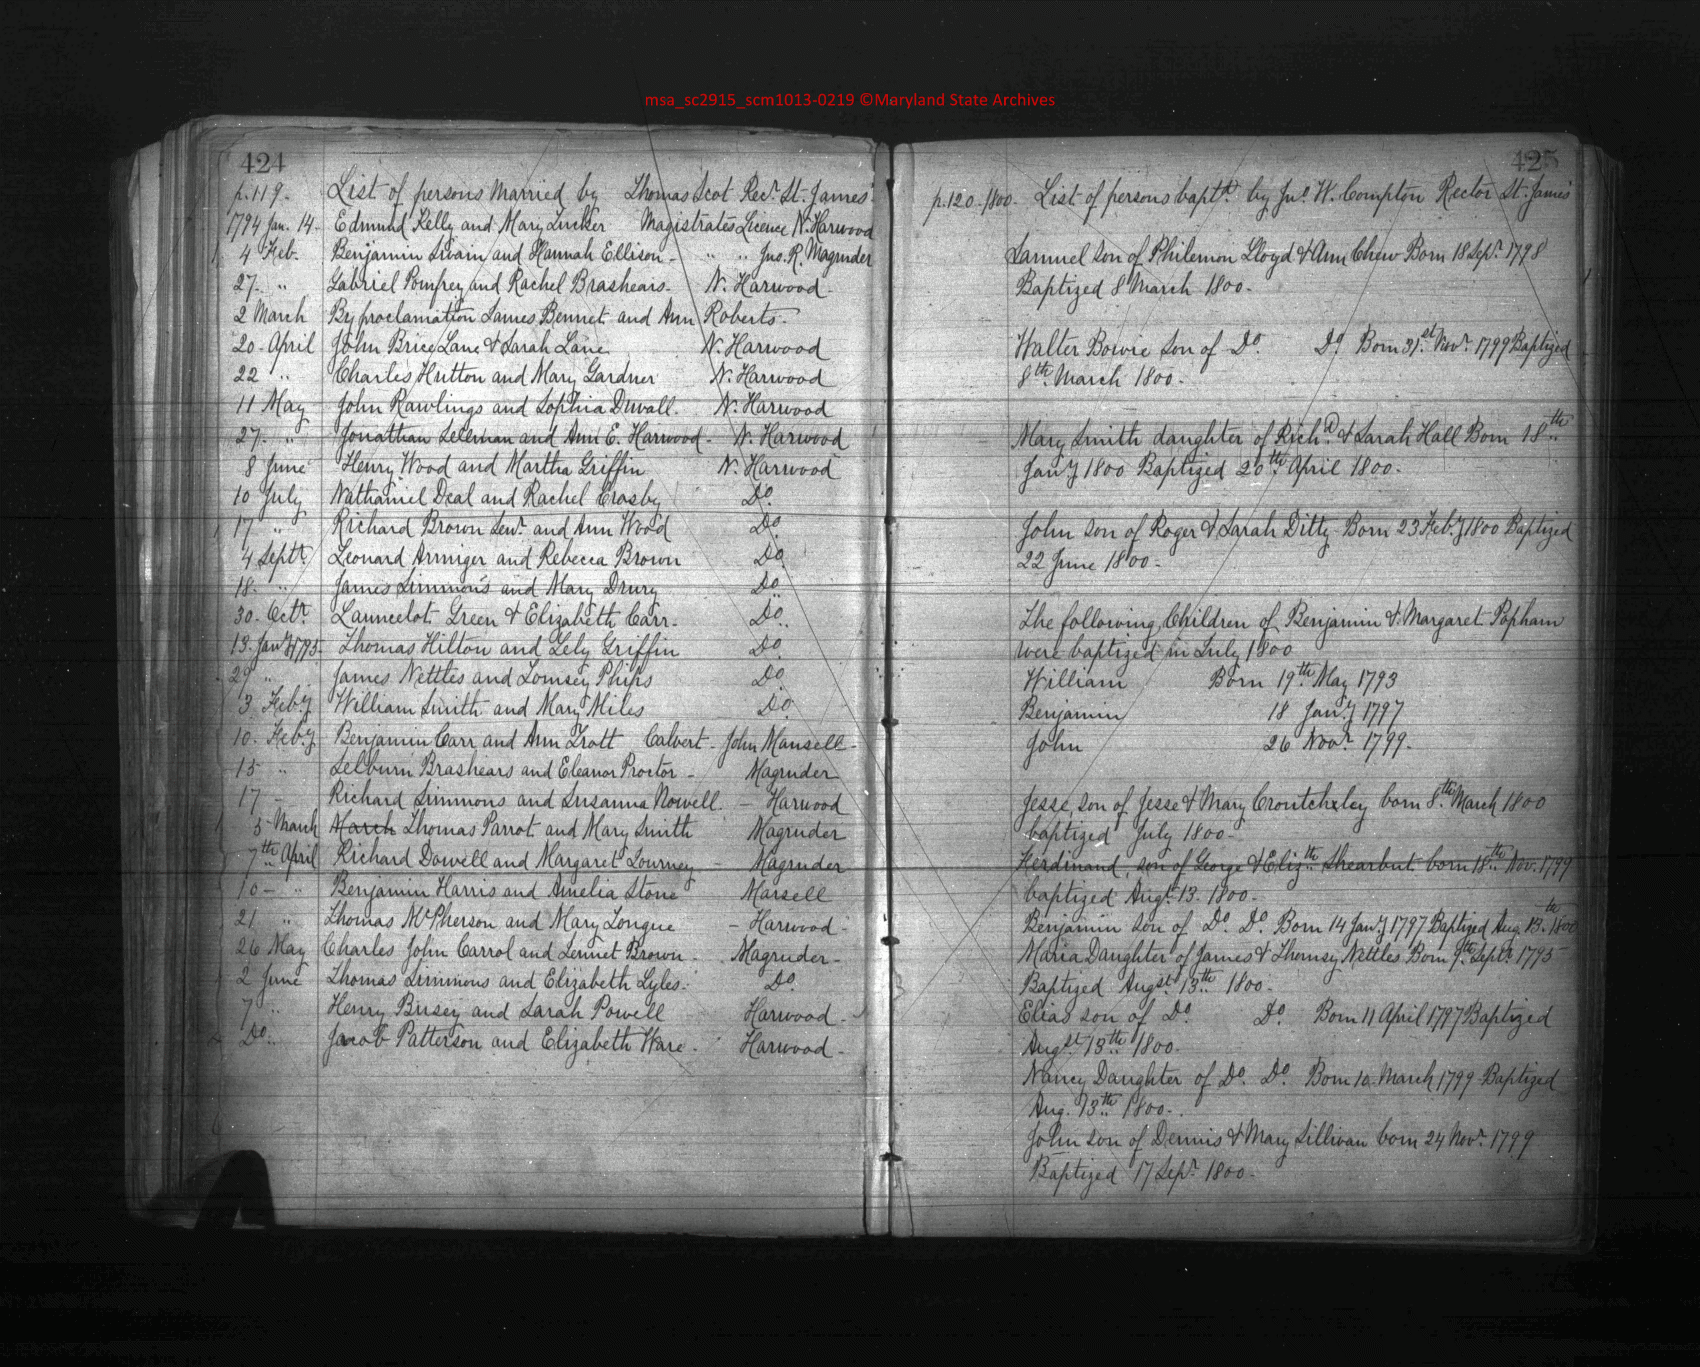 msa_sc2915_scm1013-0219 ©Maryland State Archives
424
p.119. List of persons married by Thomas Scot Recr. St. James'
1794 Jan. 14. Edmund Kelly and Mary Tucker Magistrates Licence N. Harwood
4 Feb. Benjamin Swain and Hannah Ellison - " " Jno. R. Magruder
27. " Gabriel Pomfrey and Rachel Brashears. N. Harwood.
2 March By proclamation James Bennet and Ann Roberts.
20. April John Brice Lane & Sarah Lane N. Harwood
22 " Charles Hutton and Mary Gardner N. Harwood
11 May John Rawlings and Sophia Duvall. N. Harwood
27. " Jonathan Selleman and Ann E. Harwood. N. Harwood
8 June Henry Wood and Martha Griffin N. Harwood
10 July Nathaniel Deal and Rachel Crosby Do.
17 " Richard Brown Senr. and Ann Wood Do.
4 Septr. Leonard Armiger and Rebecca Brown Do.
18. " James Simmons and Mary Drury Do.
30. Octr. Launcelot Green & Elizabeth Carr. Do.
13. Jany 1795. Thomas Hilton and Gely Griffin Do.
29 " James Nettles and Tomsey Phips Do.
3 Feby William Smith and Mary Miles Do.
10. Feby Benjamin Carr and Ann Trott Calvert - John Mansell -
15 " Selburn Brashears and Eleanor Proctor - Magruder
17 - Richard Simmons and Susanna Nowell. - Harwood
5 March March Thomas Parrot and Mary Smith Magruder
7th April Richard Dowell and Margaret Tourney - Magruder
10 - " Benjamin Harris and Amelia Stone Marsell
21 " Thomas McPherson and Mary Tongue - Harwood -
26 May Charles John Carrol and Jennet Brown. Magruder -
2 June Thomas Simmons and Elizabeth Lyles. Do.
7 " Henry Busey and Sarah Powell Harwood -
Do. Jacob Patterson and Elizabeth Ware. Harwood -
425
p.120. 1800. List of persons baptd. by Jno. W. Compton Rector St. James
Samuel son of Philemon Lloyd & Ann Chew Born 18 Sepr. 1798
Baptized 8 March 1800.
Walter Bowie son of Do. Do. Born 31st Novr. 1799 Baptized
8th March 1800.
Mary Smith daughter of Richd. & Sarah Hall Born 18th
Jany 1800 Baptized 20th April 1800.
John son of Roger & Sarah Ditty Born 23 Feby 1800 Baptized
22 June 1800.
The following Children of Benjamin & Margaret Popham
were baptized in July 1800
William Born 19th May 1793
Benjamin 18 Jany 1797
John 26 Novr. 1799.
Jesse son of Jesse & Mary Croutchxley born 8th March 1800
baptized July 1800.
Ferdinand, son of George & Elizth Shearbut born 18th Nov. 1799
baptized Augt. 13. 1800.
Benjamin son of Do. Do. Born 14 Jany 1797 Baptized Aug. 13th 1800
Maria Daughter of James & Thomsy Nettles Born 9th Septr. 1795
Baptized Augst. 13th 1800.
Elias son of Do. Do. Born 11 April 1797 Baptized
Augst. 13th 1800.
Nancy Daughter of Do. Do. Born 10 March 1799 Baptized
Aug. 13th 1800.
John son of Dennis & Mary Sillivan born 24 Novr. 1799
Baptized 17 Sepr. 1800.